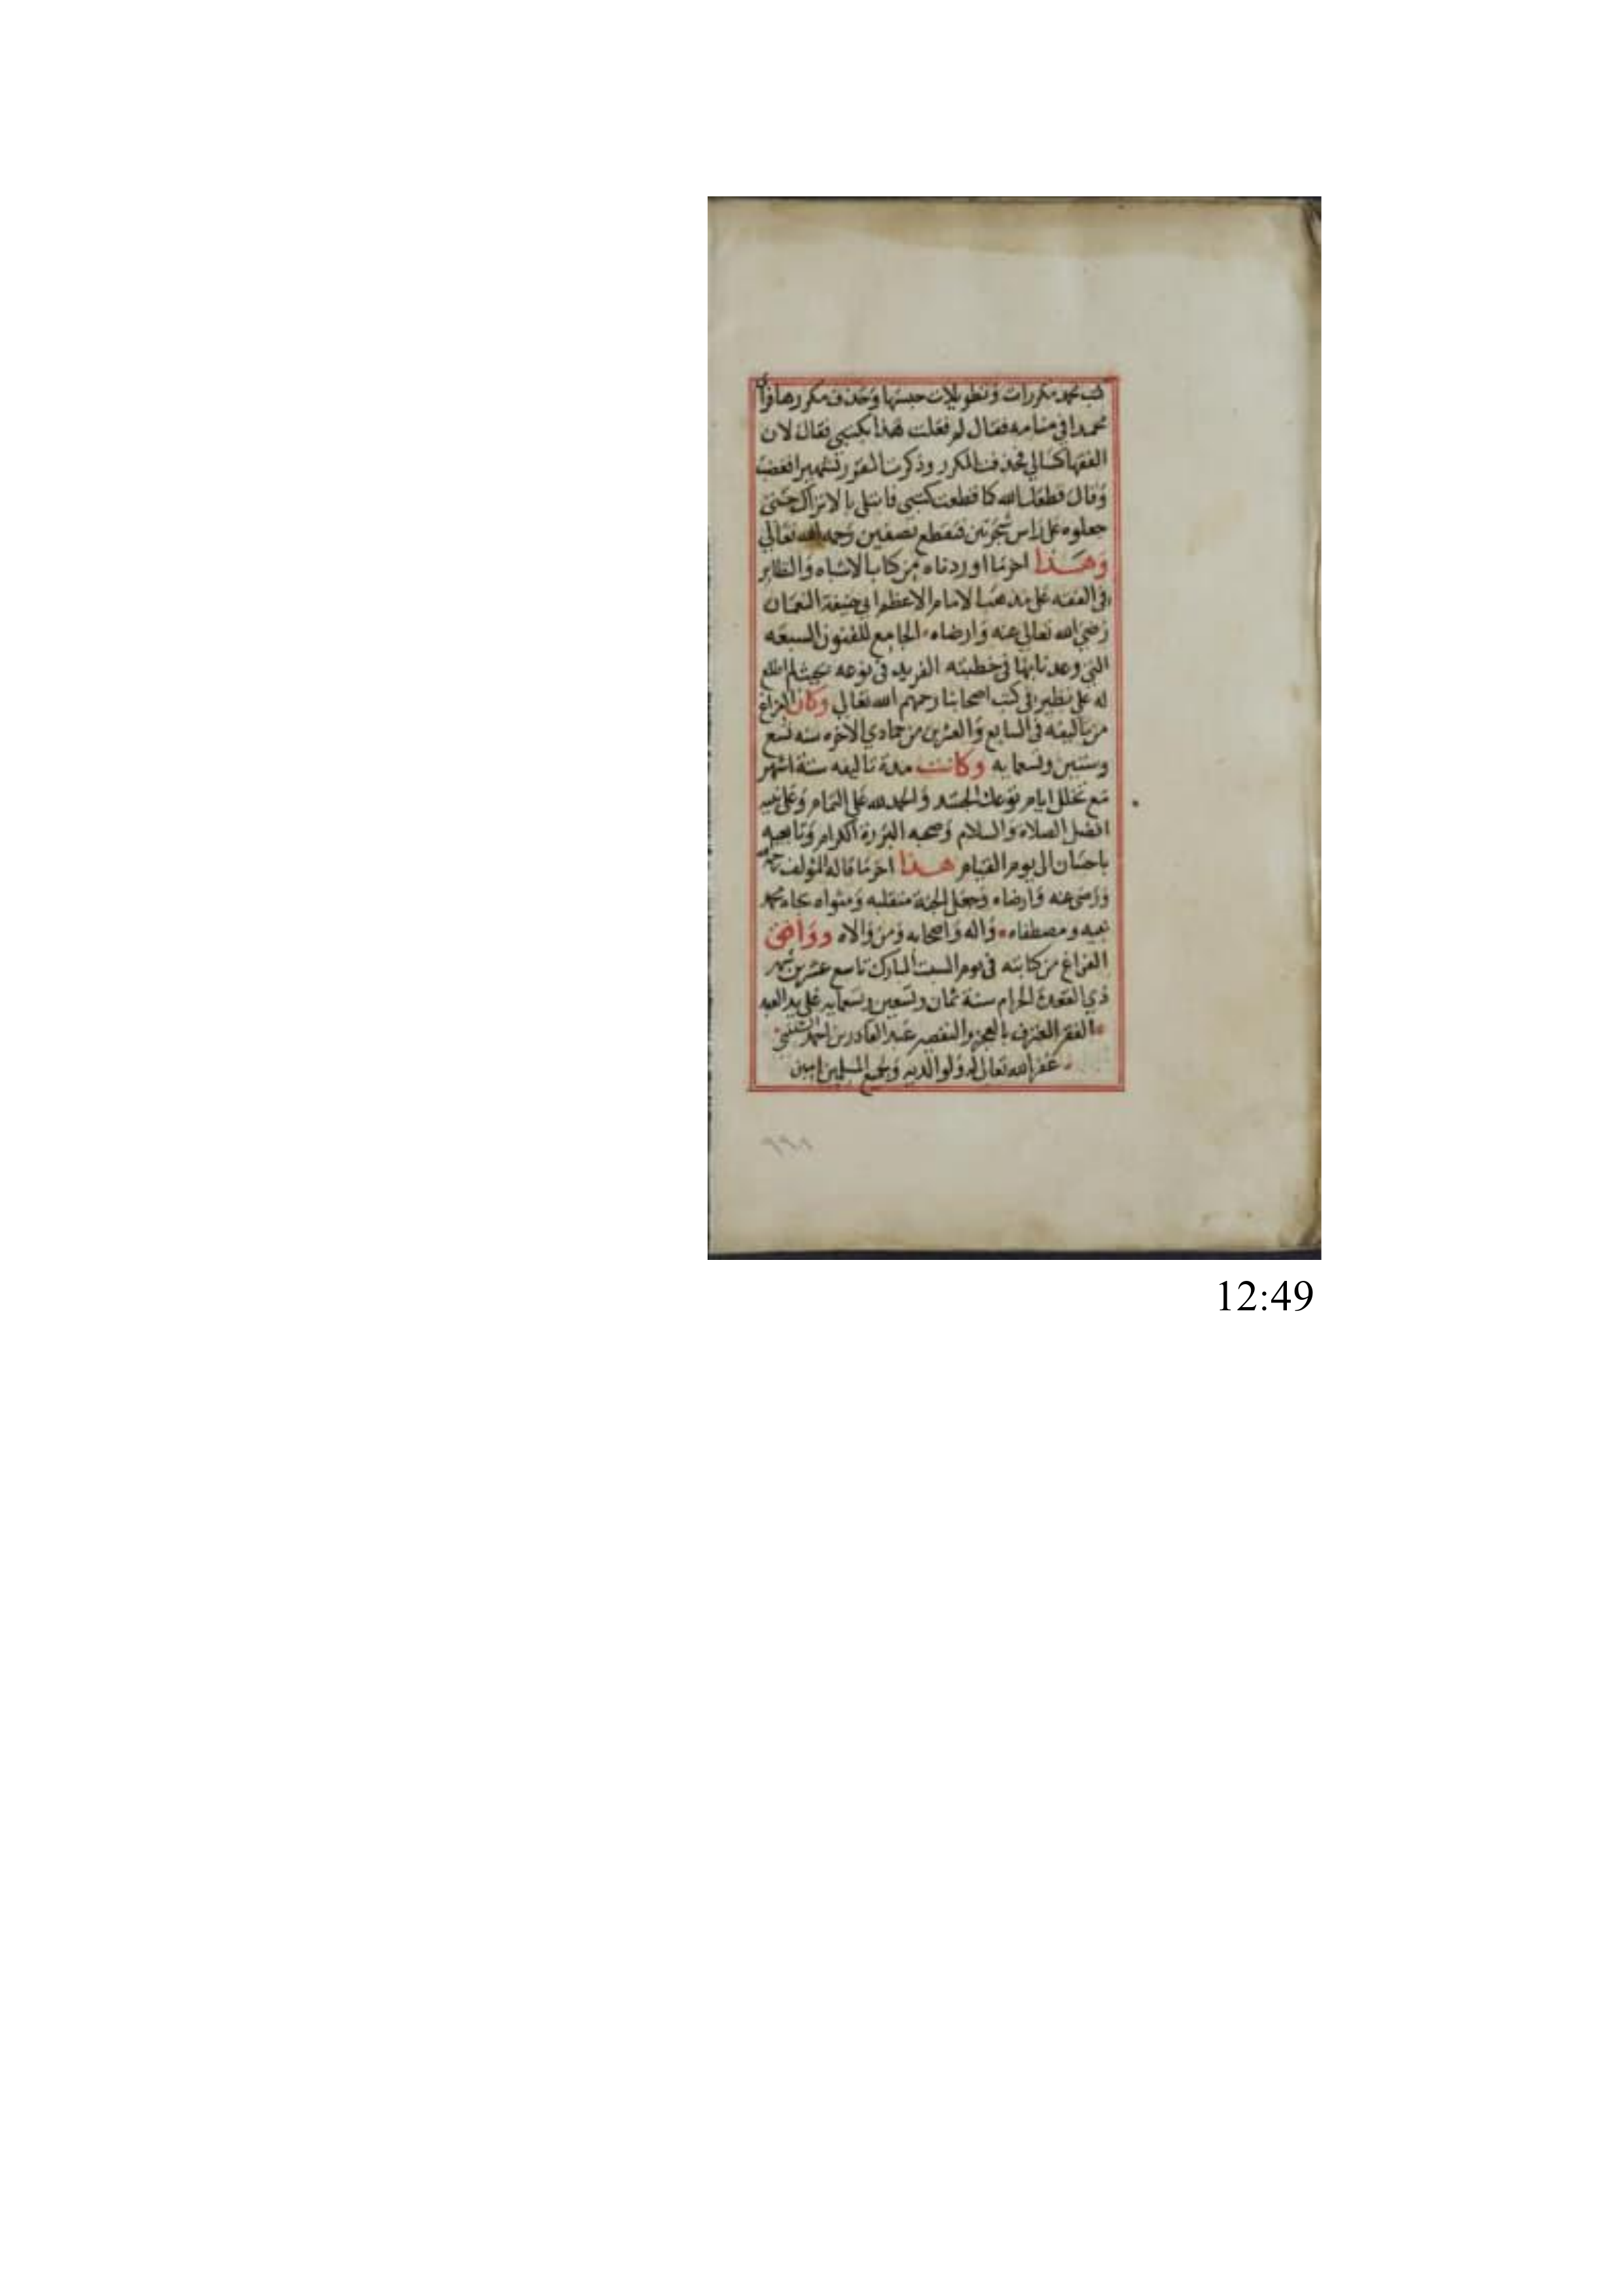 كتب محمد مكررات وتطويلات حبسها وحذف مكررها فراي
محمدا في منامه فقال لم فعلت هذا بكتبي فقال لان
الفقها كسالي فحذفت المكرر وذكرت المقرر تشهيرا فغضب
وقال قطعك الله كما قطعت كتبي فابتلي بالاتراك حتي
جعلوه علي راس شجرتين فتقطع نصفين رحمه الله تعالي
وهذا اخر ما اوردناه من كتاب الاشباه والنظاير
في الفقه علي مذهب الامام الاعظم ابي حنيفة النعمان
رضي الله تعالي عنه وارضاه الجامع للفنون السبعه
التي وعدنا بها في خطبته الفريد في نوعه بحيث لم اطلع
له علي نظير في كتب اصحابنا رحمهم الله تعالي وكان الفراغ
من تاليفه في السابع والعشرين من جمادي الاخره سنه تسع
وستين وتسعمايه وكانت مدة تاليفه ستة اشهر
مع تخلل ايام توعك الجسد والحمد لله علي التمام وعلي نبيه
افضل الصلاة والسلام وصحبه البررة الكرام وتابعيه
باحسان الي يوم القيام هذا اخر ما قاله المؤلف رحمه الله
ورضي عنه وارضاه وجعل الجنة منقلبه ومثواه بجاه محمد
نبيه ومصطفاه واله واصحابه ومن والاه ووافق
الفراغ من كتابته في يوم السبت المبارك تاسع عشرين شهر
ذي القعدة الحرام سنة ثمان وتسعين وتسعمايه علي يد العبد
الفقير المعترف بالعجز والتقصير عبد القادر بن احمد
غفر الله تعالي له ولوالديه ولجميع المسلمين امين
٩٩٨
12:49